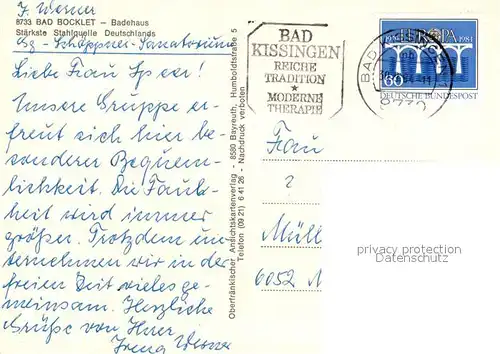 J. Werner
8733 BAD BOCKLET – Badehaus
Stärkste Stahlquelle Deutschlands
Schöppner-Sanatorium
Liebe Frau Speer!
Unsere Gruppe er-
freut sich hier be-
sonderer Bequem-
lichkeit. Die Faul-
heit wird immer
größer. Trotzdem un-
ternehmen wir in der
freien Zeit vieles ge-
meinsam. Herzliche
Grüße von Ihrer
Irena Werner
Oberfränkischer Ansichtskartenverlag - 8580 Bayreuth, Humboldtstraße 5
Telefon (09 21) 6 41 26 - Nachdruck verboten
BAD
KISSINGEN
REICHE
TRADITION
★
MODERNE
THERAPIE
EUROPA 1984
60
DEUTSCHE BUNDESPOST
BAD
8730
Frau
Müll
6052 M
privacy protection
Datenschutz